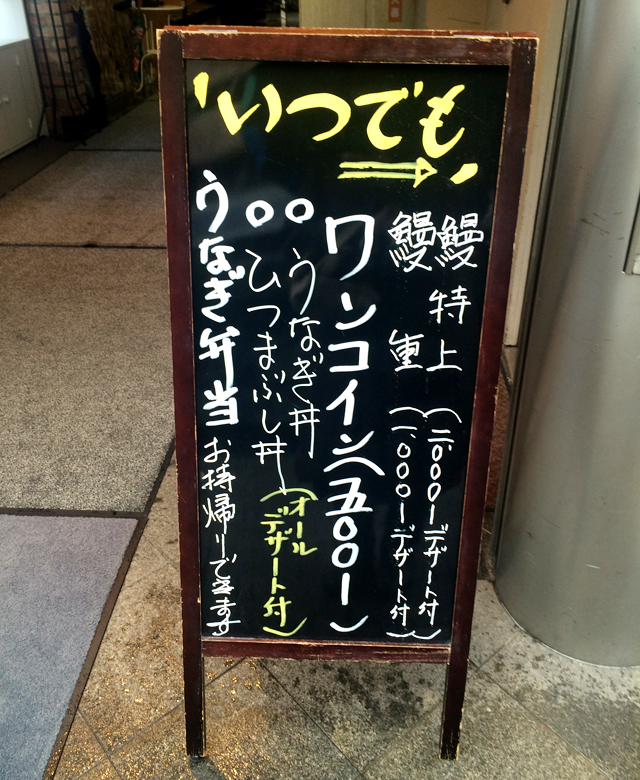 いつでも
鰻特上(二、000ーデザート付)
鰻重(一、000ーデザート付)
ワンコイン(五00ー)
○うなぎ丼
○ひつまぶし丼
(オールデザート付)
うなぎ弁当お持帰りできます